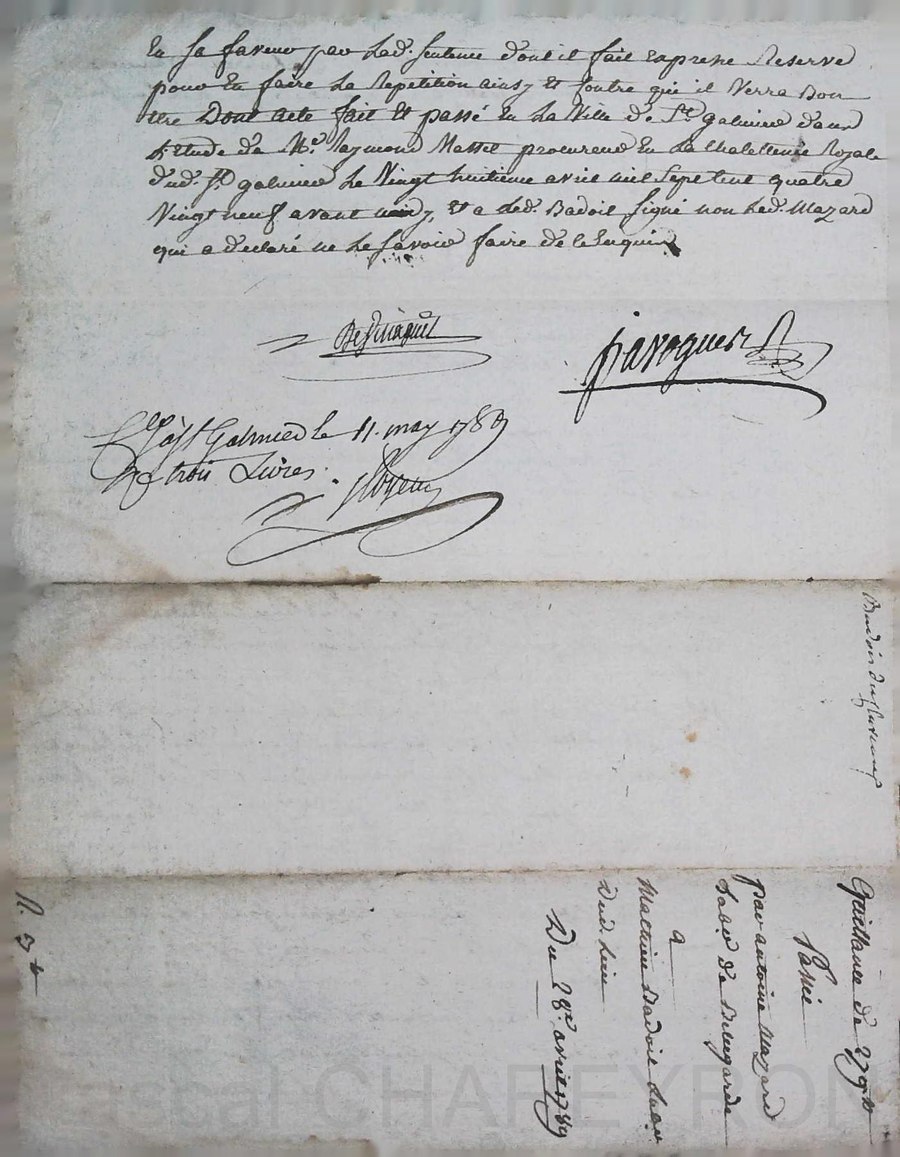 En sa faveur par lad. sentence dont il fait expresse Reserve
pour en faire la Repetition ainsy et contre qui il verra bon
etre Dont acte fait et passé en la Ville de St. galmier dans
L'Etude de Me. Raymond Massel procureur en la Chatellenie Royale
dud. St. galmier le Vingt huitieme avril mil sept cent quatre
Vingt neuf avant midy, et a led. Badoil signé non led. Mazard
qui a declaré ne le savoir faire de ce Enquis
pavoguer
St Galmier le 11. may 1789
trois Livres.
Quittance de
Passée
par antoine Mazard
Labr de Belegarde
a
Mathieu Badoil Labr
Dud. Lieu
Du 28e. avril 1789
CHAPEYRON